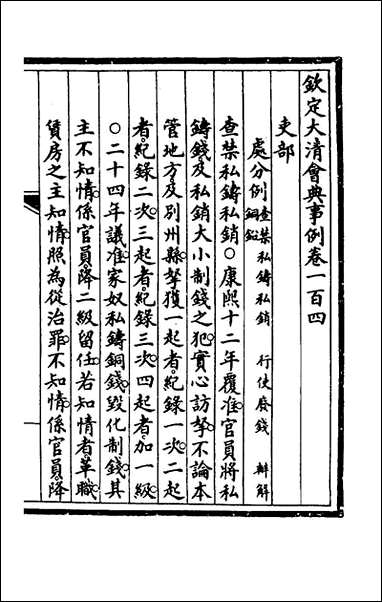 欽定大清會典事例卷一百四
吏部
處分例 查禁私鑄私銷 行使廢錢 辦解銅鉛
查禁私鑄私銷○康熙十二年覆准官員將私
鑄錢及私銷大小制錢之犯實心訪拏不論本
管地方及別州縣拏獲一起者紀錄一次二起
者紀錄二次三起者紀錄三次四起者加一級
○二十四年議准家奴私鑄銅錢毀化制錢其
主不知情係官員降二級留任若知情者革職
賃房之主知情照為從治罪不知情係官員降